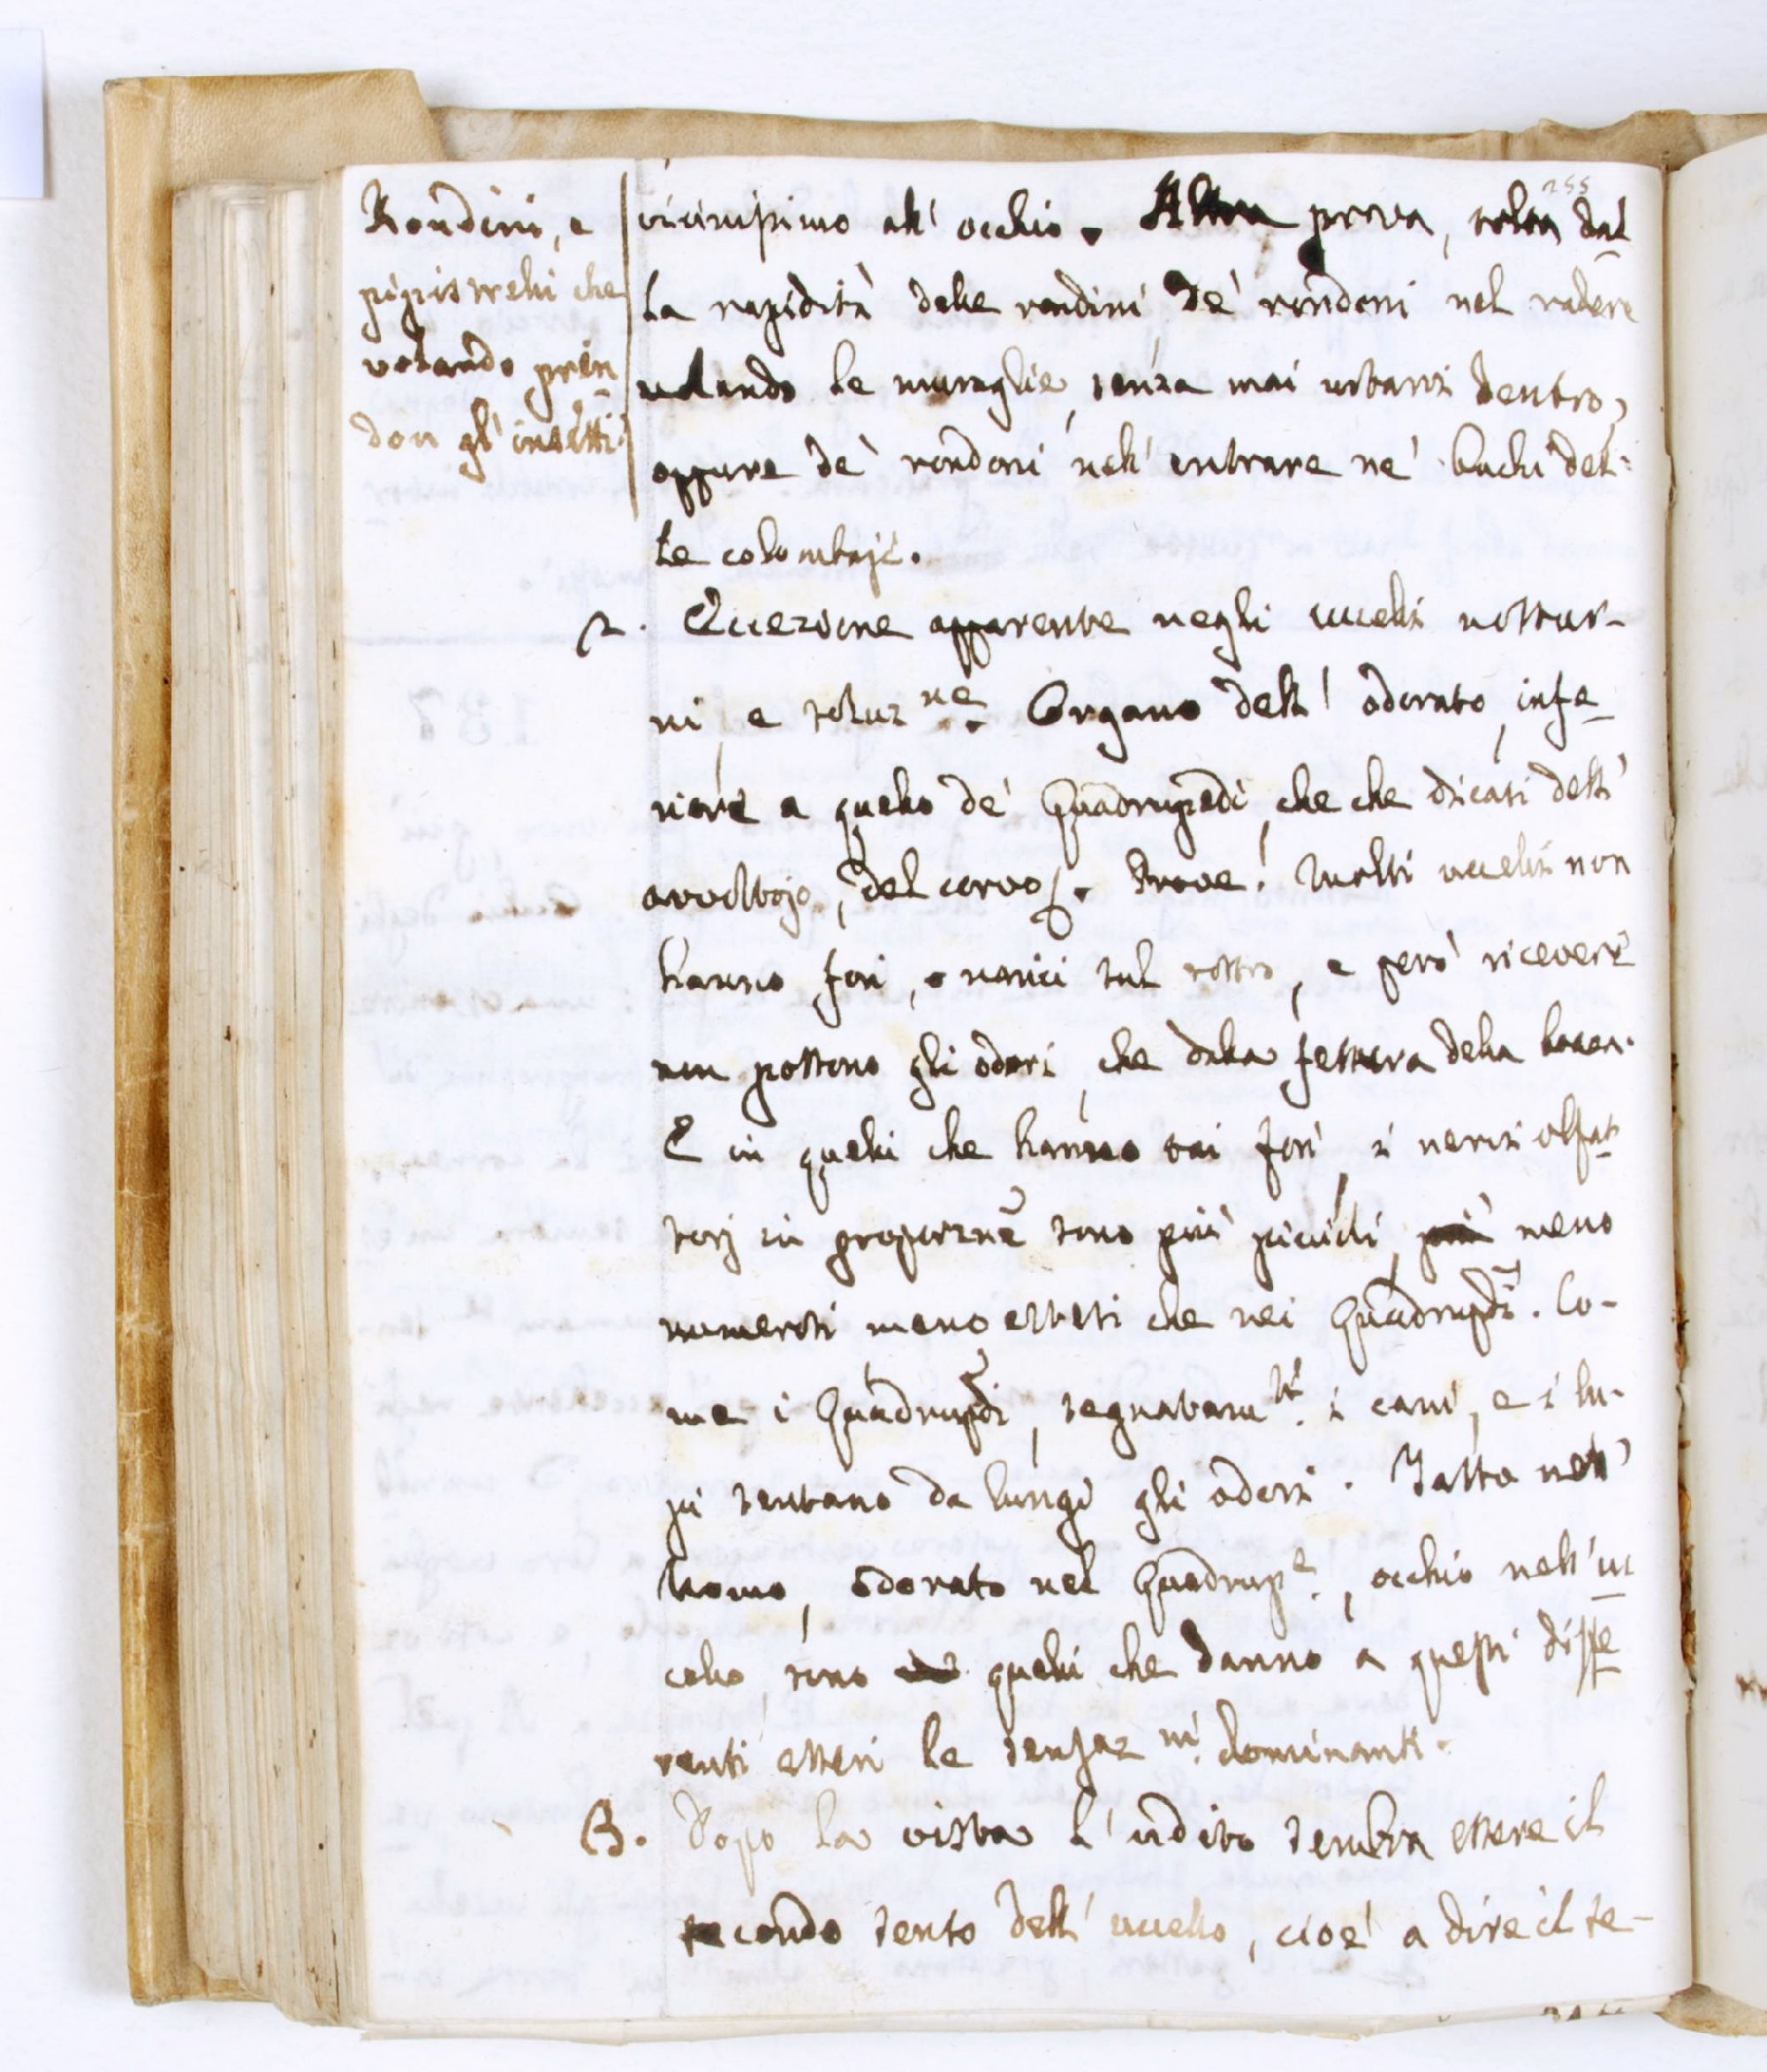 255
Rondini, e
pipistrelli che
volando pren
don gl' insetti.
vicinissimo all' occhio. Altra prova, tolta dal
la rapidità delle rondini de' rondoni nel radere
volando le muraglie, senza mai urtarvi dentro,
oppure de' rondoni nell' entrare ne' buchi del-
le colombaje.
2. Eccezione apparente negli uccelli nottur-
ni, e soluz.ne Organo dell' odorato, infe
riore a quello de' Quadrupedi, che che dicasi dell'
avoltojo, del corvo. Prove! Molti uccelli non
hanno fori, o narici sul rostro, e però ricevere
non possono gli odori, che dalla fessura della bocca.
E in quelli che hanno tai fori i nervi olfat
torj in proporzne sono più piccioli, più meno
numerosi meno estesi che nei Quadrupdi. Co-
me i Quadrupdi, segnatam.te i cani, e i lu-
pi sentano da lungi gli odori. Tatto nell'
Uomo, odorato nel Quadrup.e, occhio nell' uc
cello, sono quelli che danno a questi diffe
renti esseri le sensaz.ni dominanti.
3. Dopo la vista l' udito sembra essere il
secondo senso dell' uccello, cioè a dire il se-